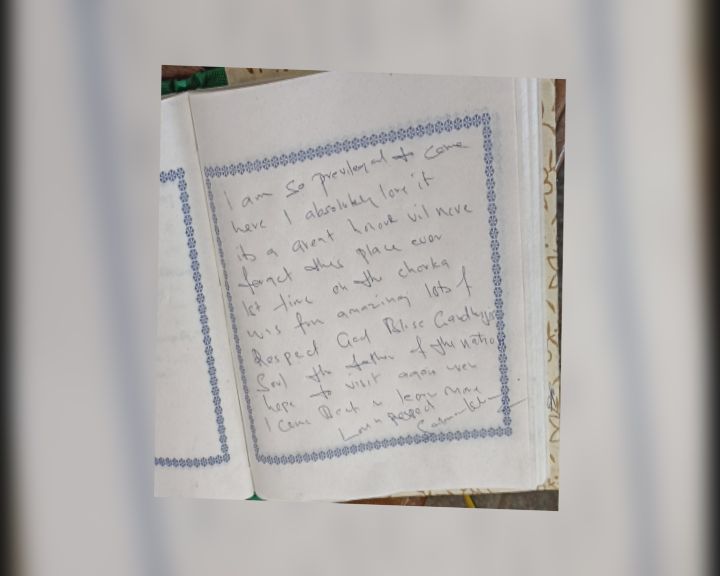 I am so previleged to come
here I absolutely love it
its a great honour wil never
forget this place ever
1st time on the charka
was fun amazing lots of
Respect God Bliss Gandhijis
Soul the father of the nation
hope to visit again when
I come Back n learn more
Love n Respect